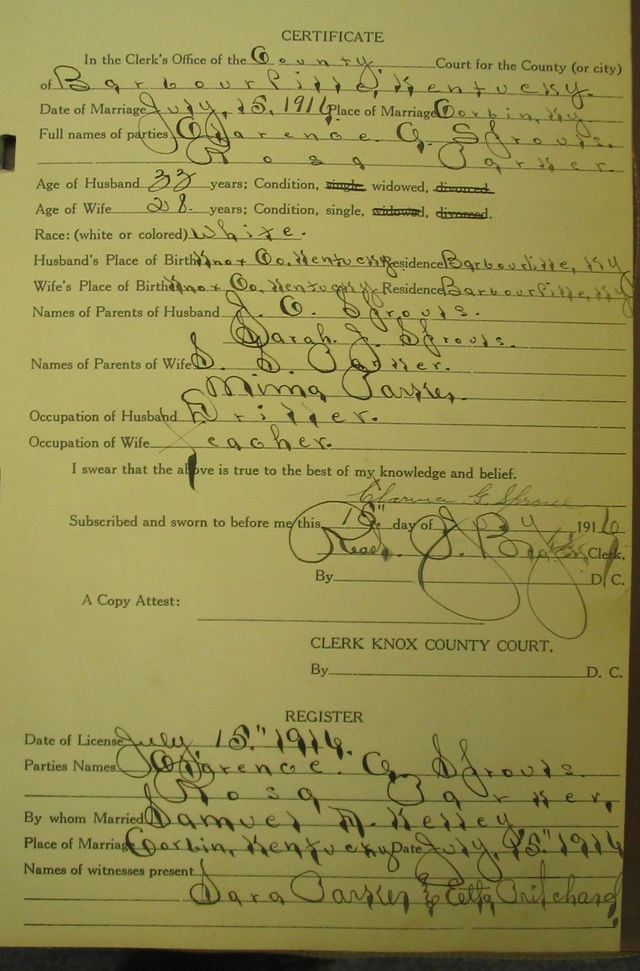 CERTIFICATE
In the Clerk's Office of the County Court for the County (or city)
of Barbourville, Kentucky.
Date of Marriage July, 15, 1916, Place of Marriage Corbin, Ky.
Full names of parties Clarence. G. Sprouls.
Rosa Parker.
Age of Husband 33 years; Condition, single, widowed, divorced.
Age of Wife 28. years; Condition, single, widowed, divorced.
Race: (white or colored) White.
Husband's Place of Birth Knox Co. Kentucky Residence Barbourville, Ky
Wife's Place of Birth Knox Co. Kentucky, Residence Barbourville, Ky
Names of Parents of Husband J. C. Sprouls.
Sarah. J. Sprouls.
Names of Parents of Wife Parker.
Mima Parker.
Occupation of Husband Driller.
Occupation of Wife Teacher.
I swear that the above is true to the best of my knowledge and belief.
Clarence G Sprouls
Subscribed and sworn to before me this 15" day of July 1916
Read. Clerk,
By D. C.
A Copy Attest:
CLERK KNOX COUNTY COURT.
By D. C.
REGISTER
Date of License July 15." 1916.
Parties Names Clarence. G. Sprouls.
Rosa Parker,
By whom Married Samuel M. Kelley,
Place of Marriage Corbin, Kentucky Date July, 15." 1916
Names of witnesses present
Sara Parker & Etta Pritchard,